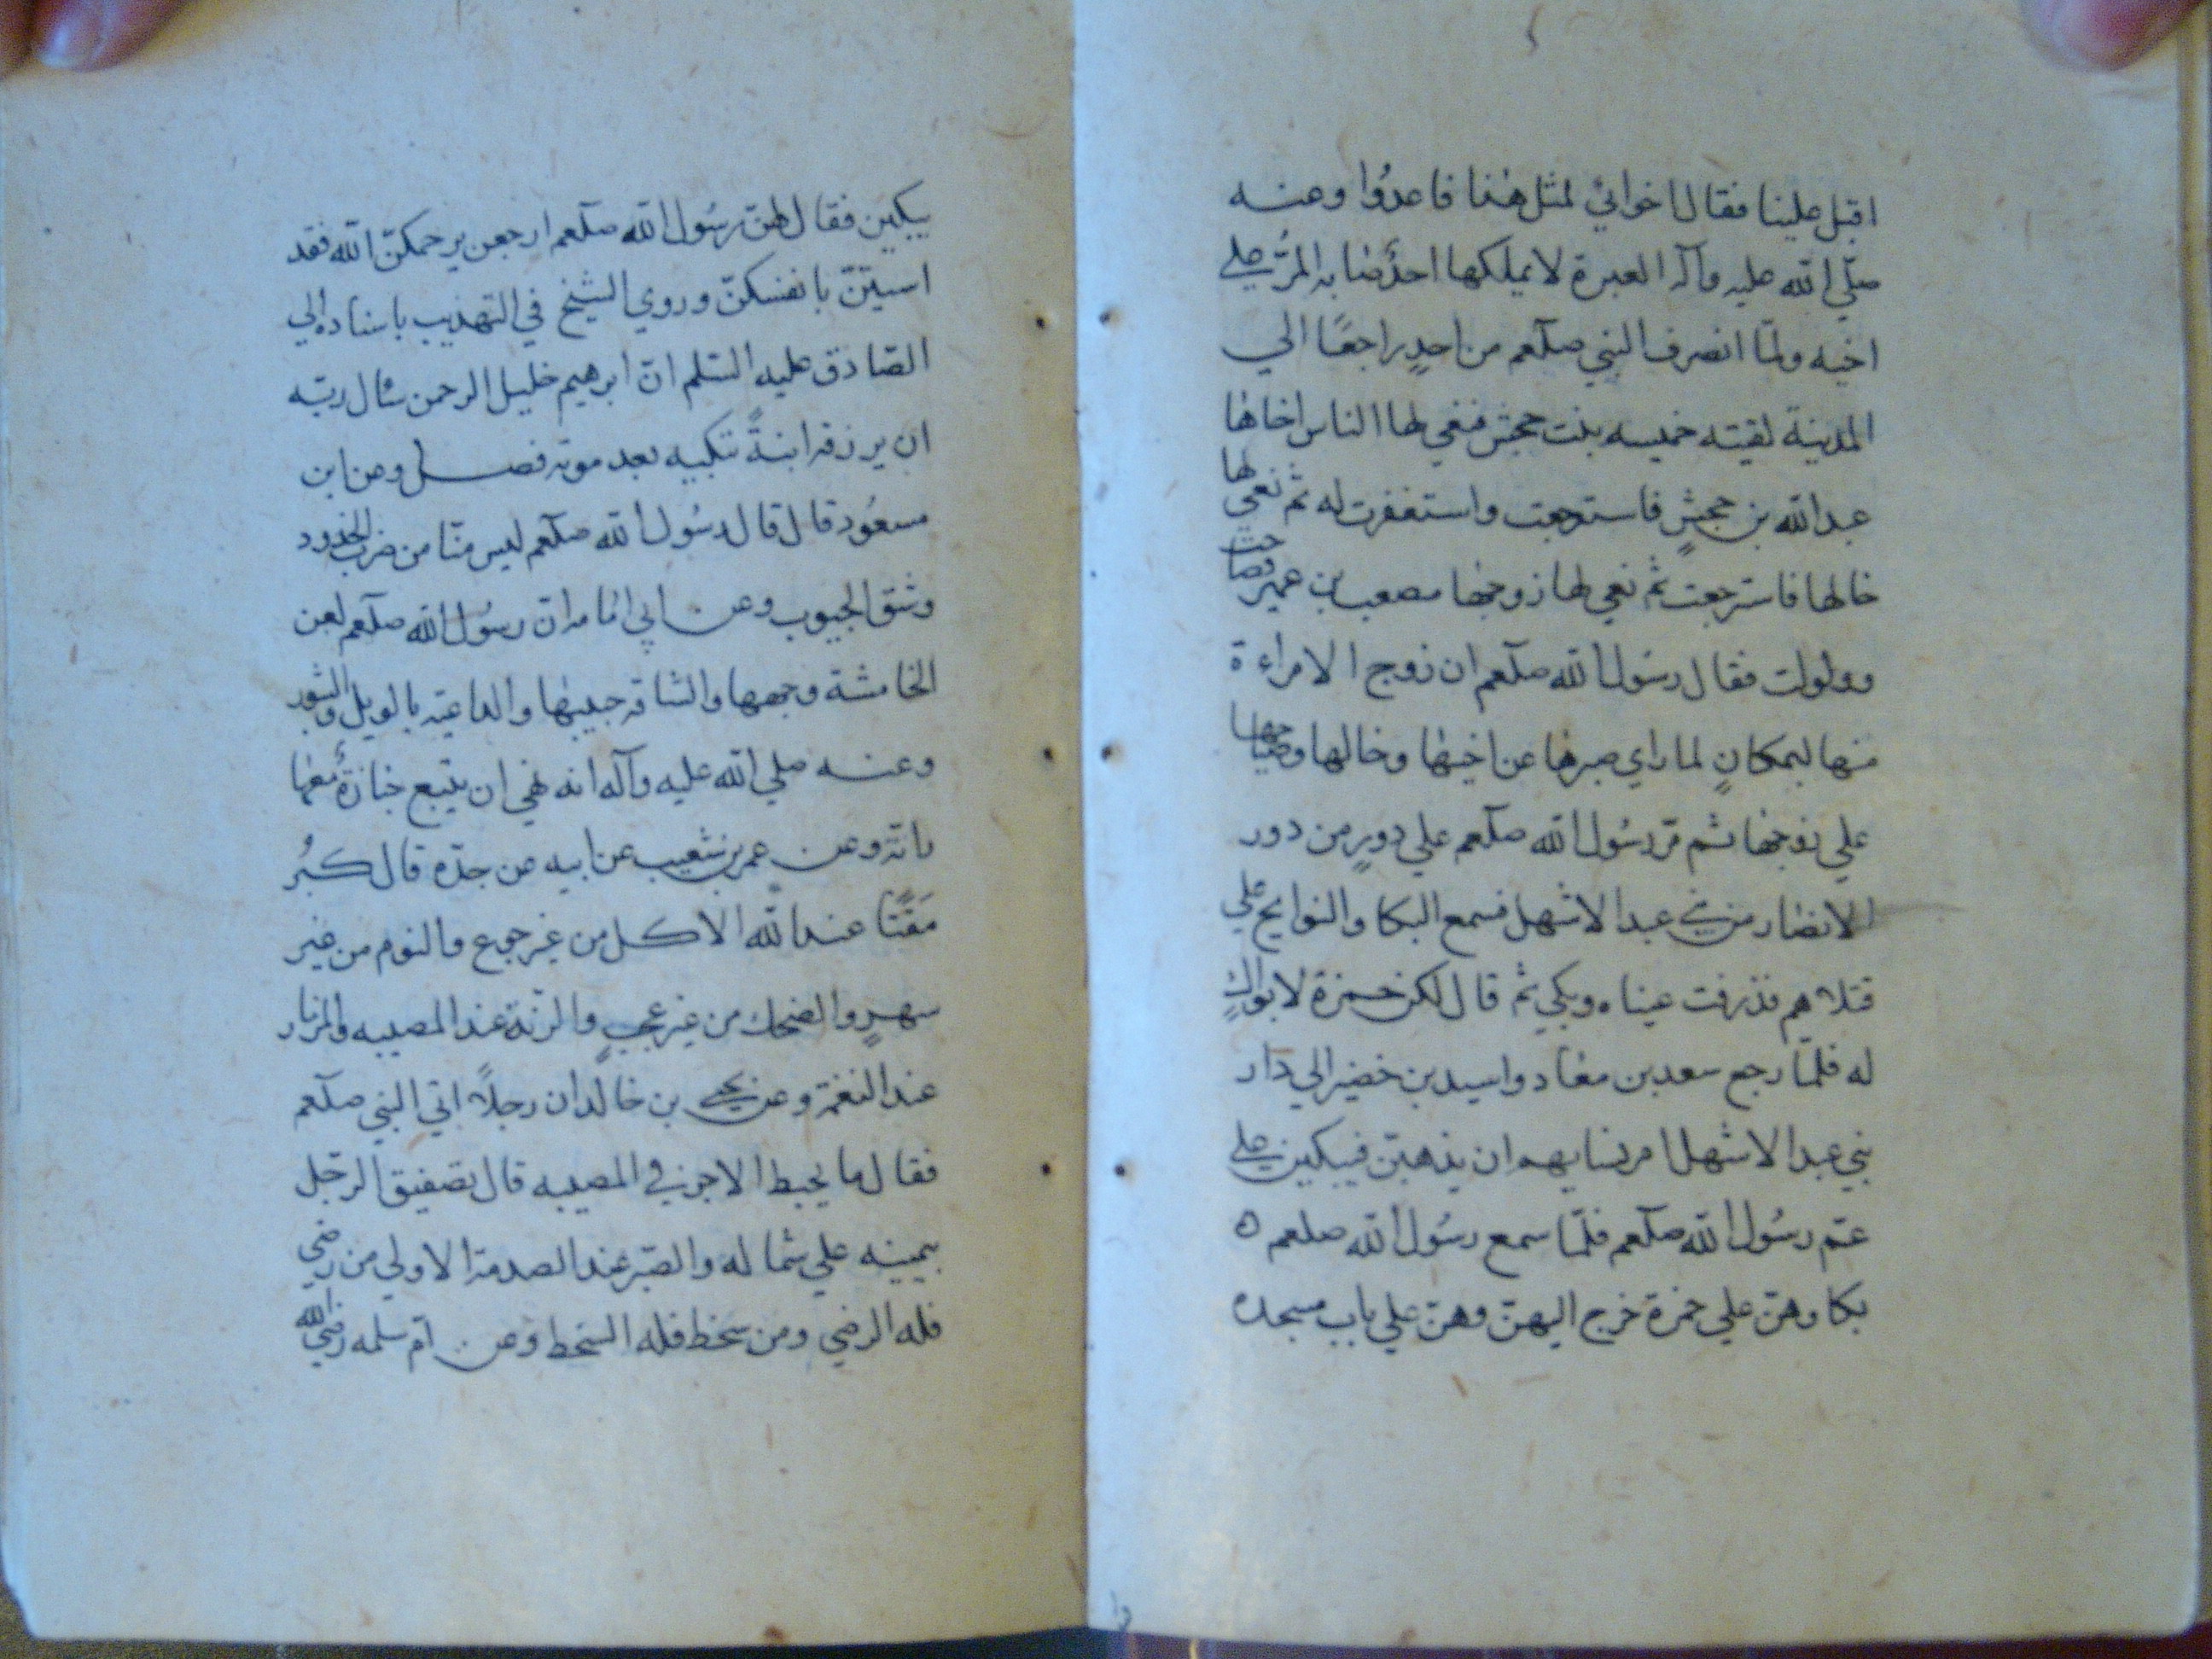 اقبل علينا فقال اخواني لمثل هذا فاعدوا وعنه
صلّي الله عليه وآله العبرة لا يملكها احدٌ صبابه المرء علي
اخيه ولمّا انصرف النبي صلعم من احدٍ راجعًا الي
المدينة لقيته خميسه بنت جحش فنعي لها الناس اخاها
عبد الله بن جحشٍ فاسترجعت واستغفرت له ثم نعي لها
خالها فاسترجعت ثم نعي لها زوجها مصعب بن عمير فصاحت
وولولت فقال رسُول الله صلعم ان زوج الامراءة
منها لبمكانٍ لما راي صبرها عن اخيها وخالها وصياحها
علي زوجها ثم مرّ رسُول الله صلعم علي دورٍ من دور
الانصار من بني عبد الاشهل فسمع البكا والنوايح علي
قتلاهم فذرفت عيناه وبكي ثم قال لكن حمزة لا بواكٍ
له فلمّا رجع سعد بن معاد واسيد بن خضير الي دار
بني عبد الاشهل امر نسايهم ان يذهبن فيبكين علي
عمّ رسُول الله صلعم فلمّا سمع رسُول الله صلعم ه
بكاوهنّ علي حمزة خرج اليهنّ وهنّ علي باب مسجده
يبكين فقال لهنّ رسُول الله صلعم ارجعن يرحمكنّ الله فقد
اسيتنّ بانفسكنّ وروي الشيخ في التهذيب باسناده الي
الصّادق عليه السّلم انّ ابرهيم خليل الرحمن سُال ربّه
ان يرزقه ابنةً تبكيه بعد موته فصل وعن ابن
مسعُود قال قال رسُول الله صلعم ليس منّا من ضرب الخدود
وشق الجيوب وعن ابي امامه انّ رسُول الله صلعم لعن
الخامشة وجهها والشاقه جيبها والداعيه بالويل والثبور
وعنه صلي الله عليه وآله انه نهي ان يتبع جنازةٌ معها
رانّه وعن عمر بن شعيب عن ابيه عن جدّه قال كبُر
مَقْتًا عند الله الاكل من غير جوع والنوم من غير
سهرٍ والضحك من غير عجبٍ والرنّة عند المصيبه والمزمار
عند النغمة وعن يحيي بن خالد ان رجلاً اتي النبي صلعم
فقال ما يحبط الاجر في المصيبه قال تصفيق الرجل
بيمينه علي شماله والصّبر عند الصدمة الاولي من رضي
فله الرضي ومن سخط فله السخط وعن امّ سلمه رضي الله